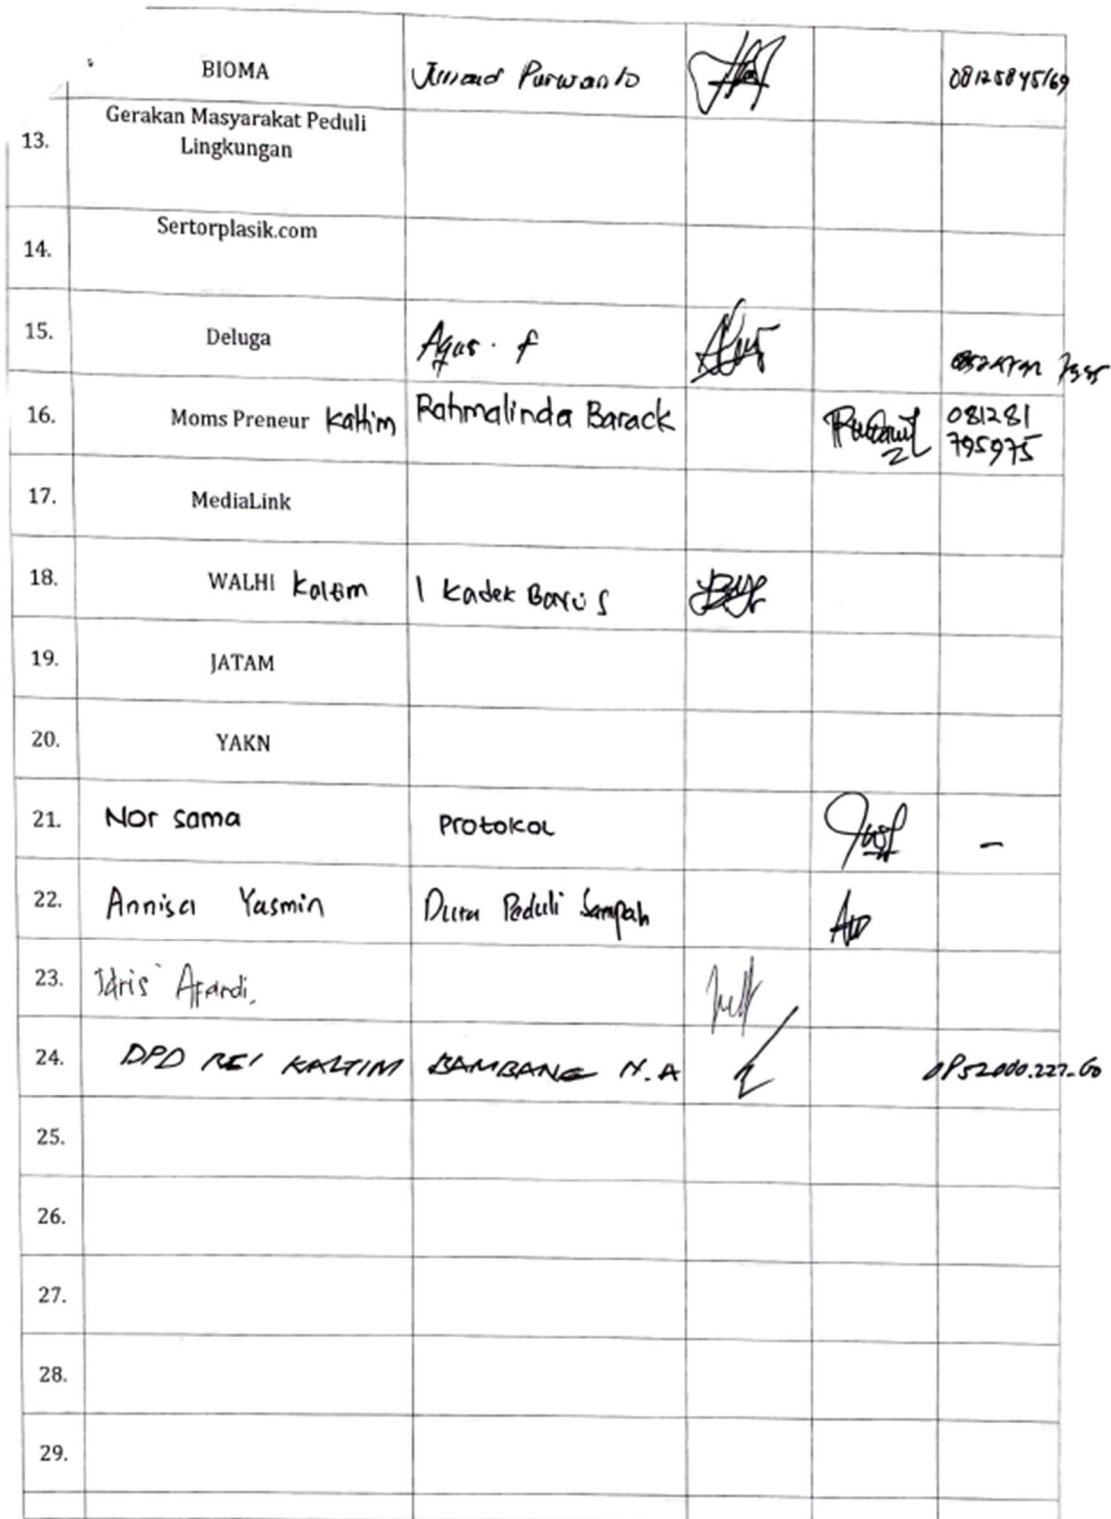 BIOMA Purwanto 08125845169
Gerakan Masyarakat Peduli
13.
Lingkungan
Sertorplasik.com
14.
15. Deluga Agus . f
16. Moms Preneur Kaltim Rahmalinda Barack 081281
795975
17. MediaLink
18. WALHI Kaltim I Kadek S
19. JATAM
20. YAKN
21. Nor sama Protokol –
22. Annisa Yasmin Duta Peduli Sampah
23. Idris Afandi.
24. DPD REI KALTIM BAMBANG N.A
25.
26.
27.
28.
29.